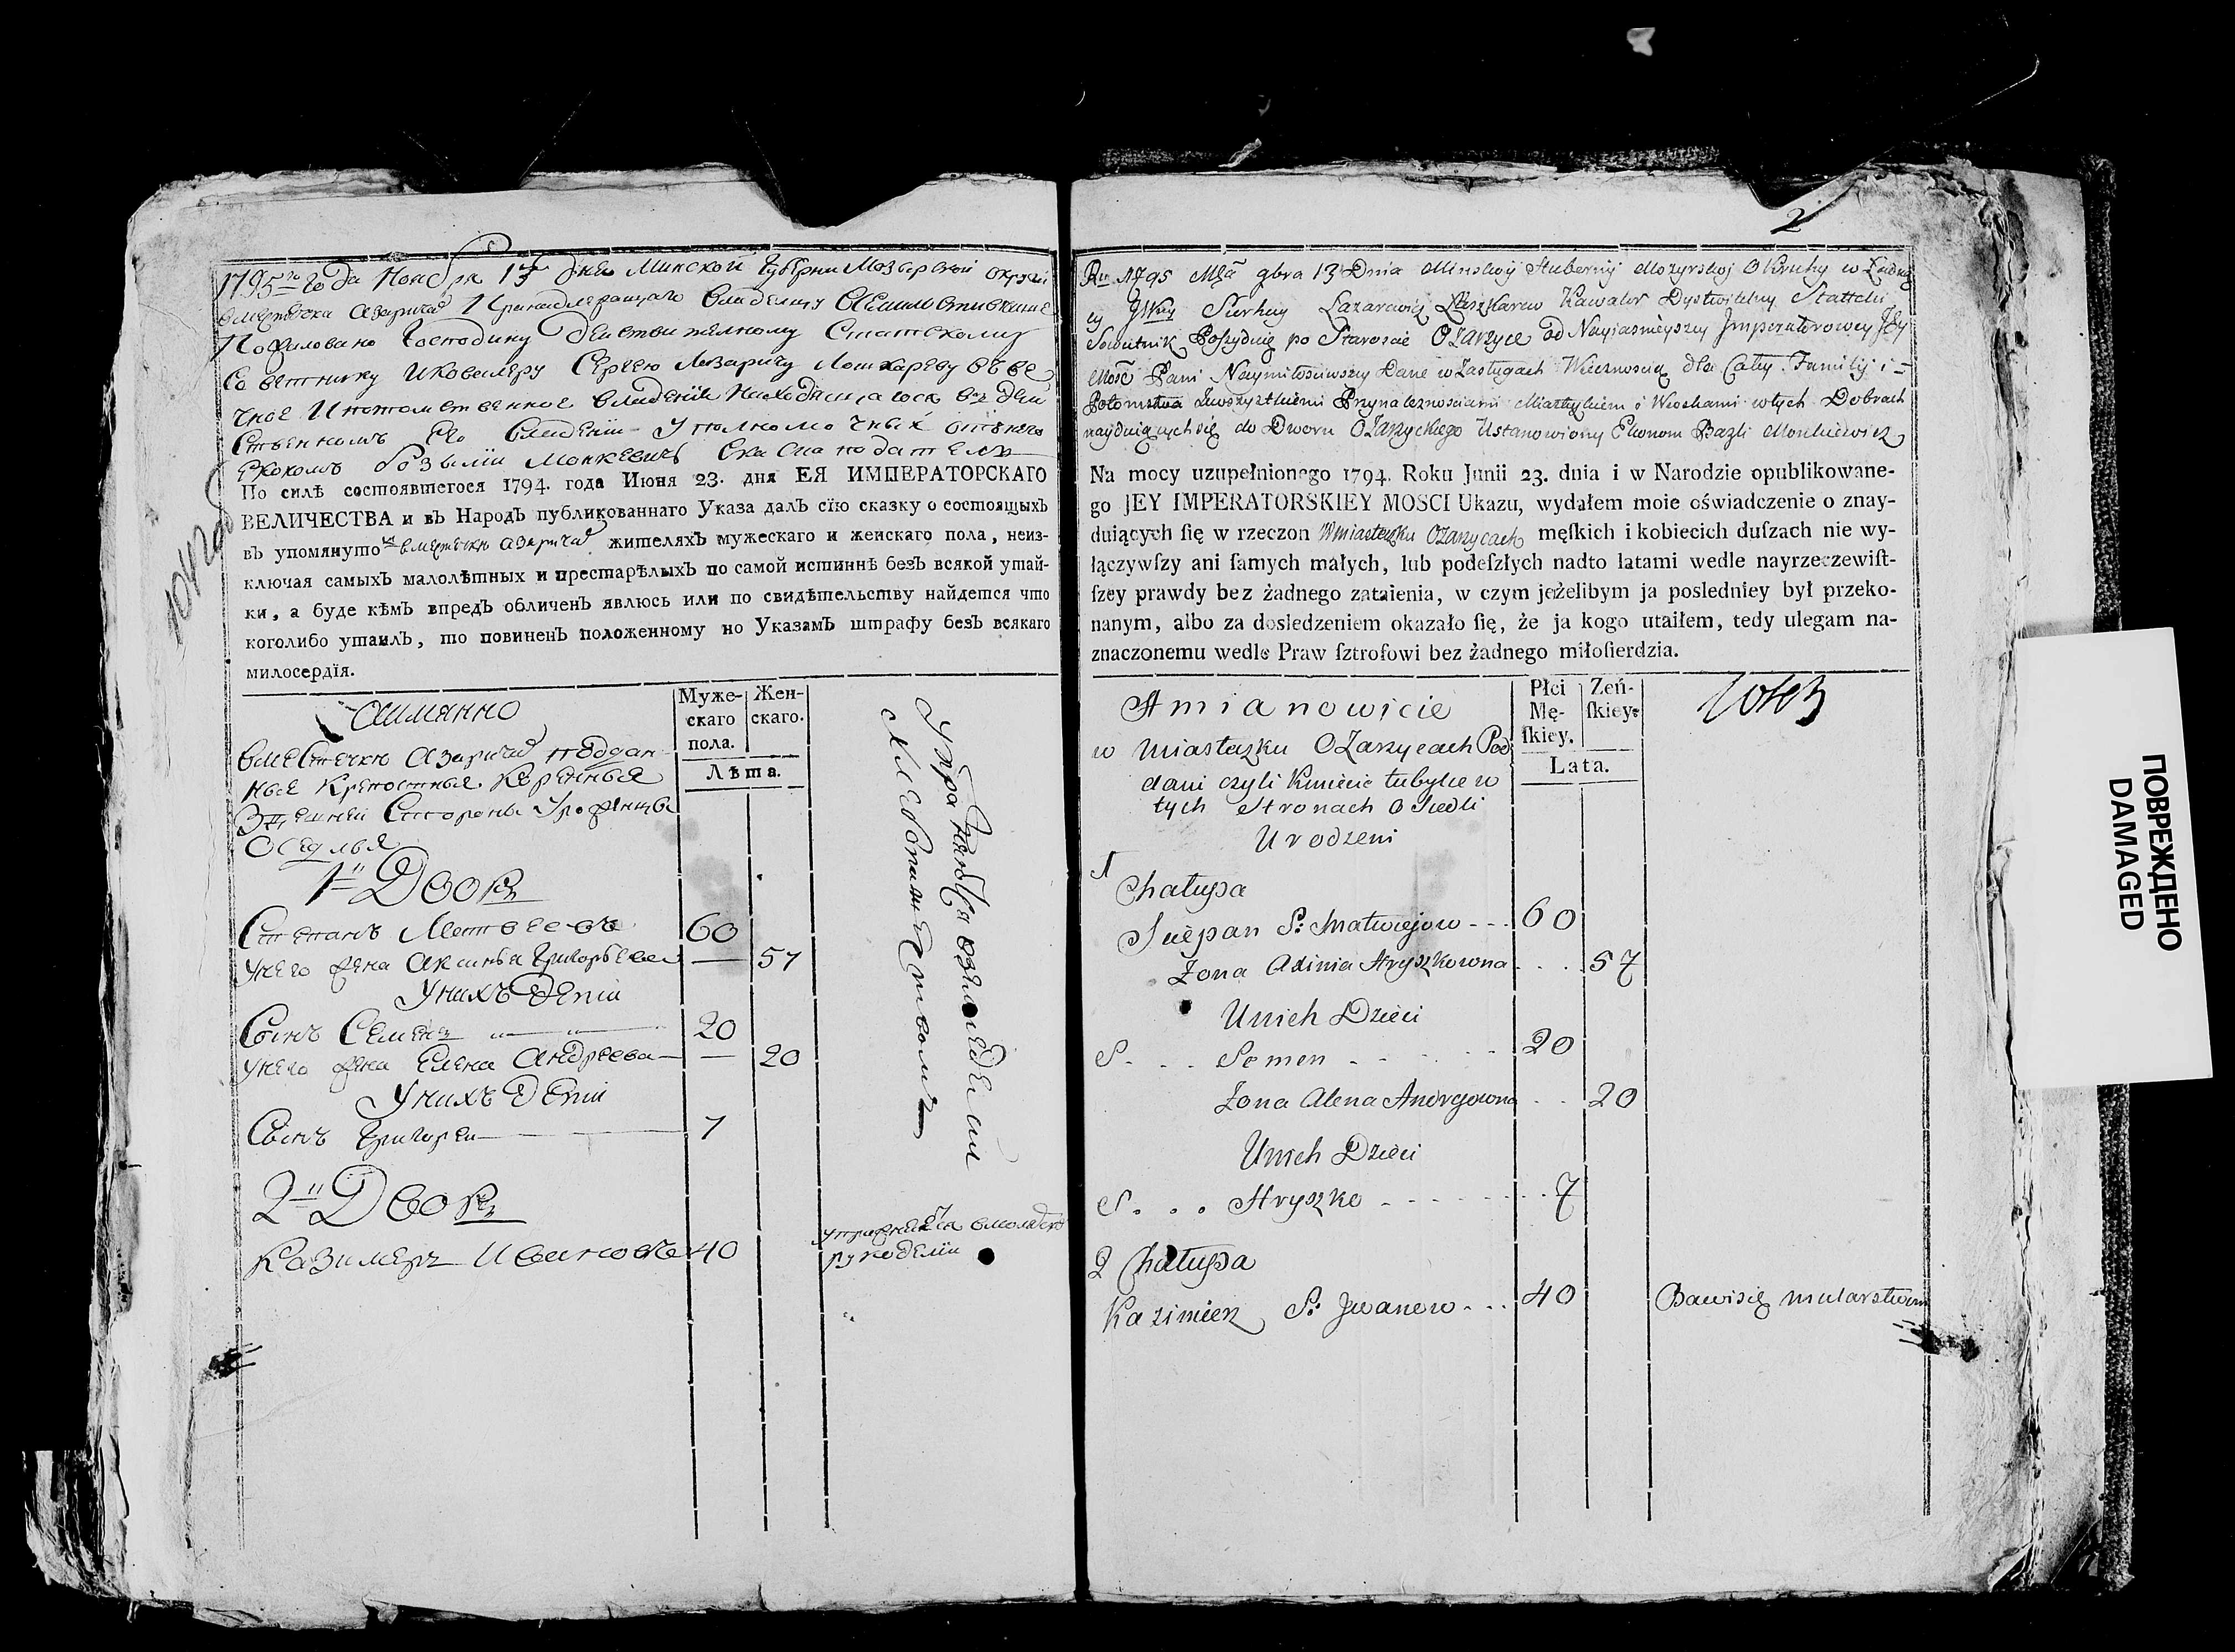 1795го года Ноября 13 дня Минской Губернии Мозырской округи
вместечка Азаричъ Принадлежащаго владельцу
Пожаловано Господину Действителному Статскому
Советнику Иковалеру Сергею Лазаричу Лошкареву вѣве
чное Ипотомственное владение
его владении Уполномочный
Экономъ Монкевичъ Сказка
По силѣ состоявшегося 1794. года Июня 23. дня ЕЯ ИМПЕРАТОРСКАГО
ВЕЛИЧЕСТВА и въ Народъ публикованнаго Указа далъ сїю сказку о состоящыхъ
въ упомянуто вместечки Азаричъ жителяхъ мужескаго и женскаго пола, неиз-
ключая самыхъ малолѣтныхъ и престарѣлыхъ по самой истиннѣ безъ всякой утай-
ки, а буде кѣмъ впредь обличенъ явлюсь или по свидѣтельству найдется что
коголибо утаилъ, то повиненъ положенному но Указамъ штрафу безъ всякаго
милосердїя.
Аимянно
Муже-
скаго
пола.
Жен-
скаго.
Лѣта.
вместечки Азаричъ поддан
ные Крепостные Коренные
Здешней Стороны Уроженцы
Оседлые
1й Дворъ
Степанъ Матвеевъ 60
Унего жена Аксинья Григорьева — 57
Унихъ Дети
Сынъ Семенъ 20
Унего жена Елена Андреева — 20
Унихъ Дети
Сынъ Григорей 7
2й Дворъ
Казимеръ Ивановъ 40
Упражняются
хлебопашествомъ
рукоделии
2
Ru 1795 Mca 9bra 13 Dnia Minskoy Huberny Mozyrskoj Okruhy
Sierhiey Lazarewicz Laszkarew Kawaler Dystwitelny Statteki
Sowietnik Possyduię po Staroscie Ozarzyce od Nayiasnieyszey Imperatorowey Jey
Mość Pani Naymiłościwszey Dane w Zasługach Wiecznoscią dla Całey Familij i
Potomstwa Zewszystkiemi Przynaleznosciami Miastyczkiem i Wioskami wtych Dobrach
nayduiącychsię do Dworu Ozarzyckiego Ustanowiony Ekonom Bazli Monkiewicz
Na mocy uzupełnionego 1794. Roku Junii 23. dnia i w Narodzie opublikowane-
go JEY IMPERATORSKIEY MOSCI Ukazu, wydałem moie oświadczenie o znay-
duiących ſię w rzeczon Wmiasteczku Ozarzycach męſkich i kobiecich duſzach nie wy-
łączywſzy ani ſamych małych, lub podeſzłych nadto latami wedle nayrzeczewiſt-
ſzey prawdy bez żadnego zataienia, w czym jeżelibym ja posledniey był przeko-
nanym, albo za dosledzeniem okazało ſię, że ja kogo utaiłem, tedy ulegam na-
znaczonemu wedle Praw ſztrofowi bez żadnego miłoſierdzia.
Amianowicie
Płci
Mę-
ſkiey.
Zeń-
ſkiey.
Lata.
w Miasteczku Ozarzycach Pod
dani czyli Kmiecie tubylce w
tych Stronach Osiedli
Urodzeni
1
Chałupa
Sciepan S: Matwiejow 60
Żona Axinia Hryszkowna 57
Unich Dzieci
S. Semen 20
Żona Alena Andrejowna 20
Unich Dzieci
S. Hryszko 7
2 Chałupa
Kazimierz S: Jwanow 40 Bawisię mularstwem
ПОВРЕЖДЕНО
DAMAGED